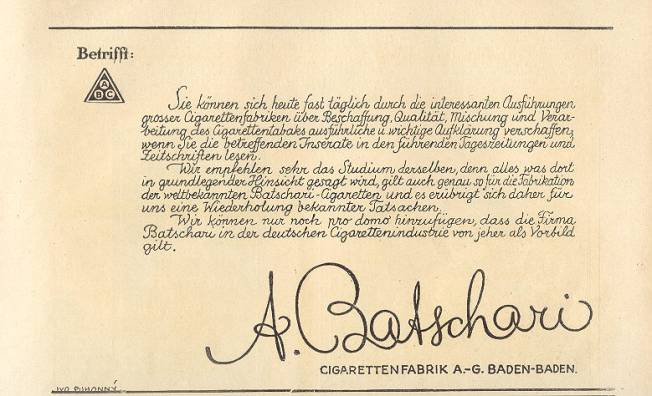 Betrifft:
A
B C
Sie können sich heute fast täglich durch die interessanten Ausführungen
grosser Cigarettenfabriken über Beschaffung, Qualität, Mischung und Verar-
beitung des Cigarettentabaks ausführliche u. wichtige Aufklärung verschaffen,
wenn Sie die betreffenden Inserate in den führenden Tageszeitungen und
Zeitschriften lesen.
Wir empfehlen sehr das Studium derselben, denn alles was dort
in grundlegender Hinsicht gesagt wird, gilt auch genau so für die Fabrikation
der weltbekannten Batschari-Cigaretten und es erübrigt sich daher für
uns eine Wiederholung bekannter Tatsachen.
Wir können nur noch pro domo hinzufügen, dass die Firma
Batschari in der deutschen Cigarettenindustrie von jeher als Vorbild
gilt.
A. Batschari
CIGARETTENFABRIK A.-G. BADEN-BADEN.
IVO PUHONNÝ